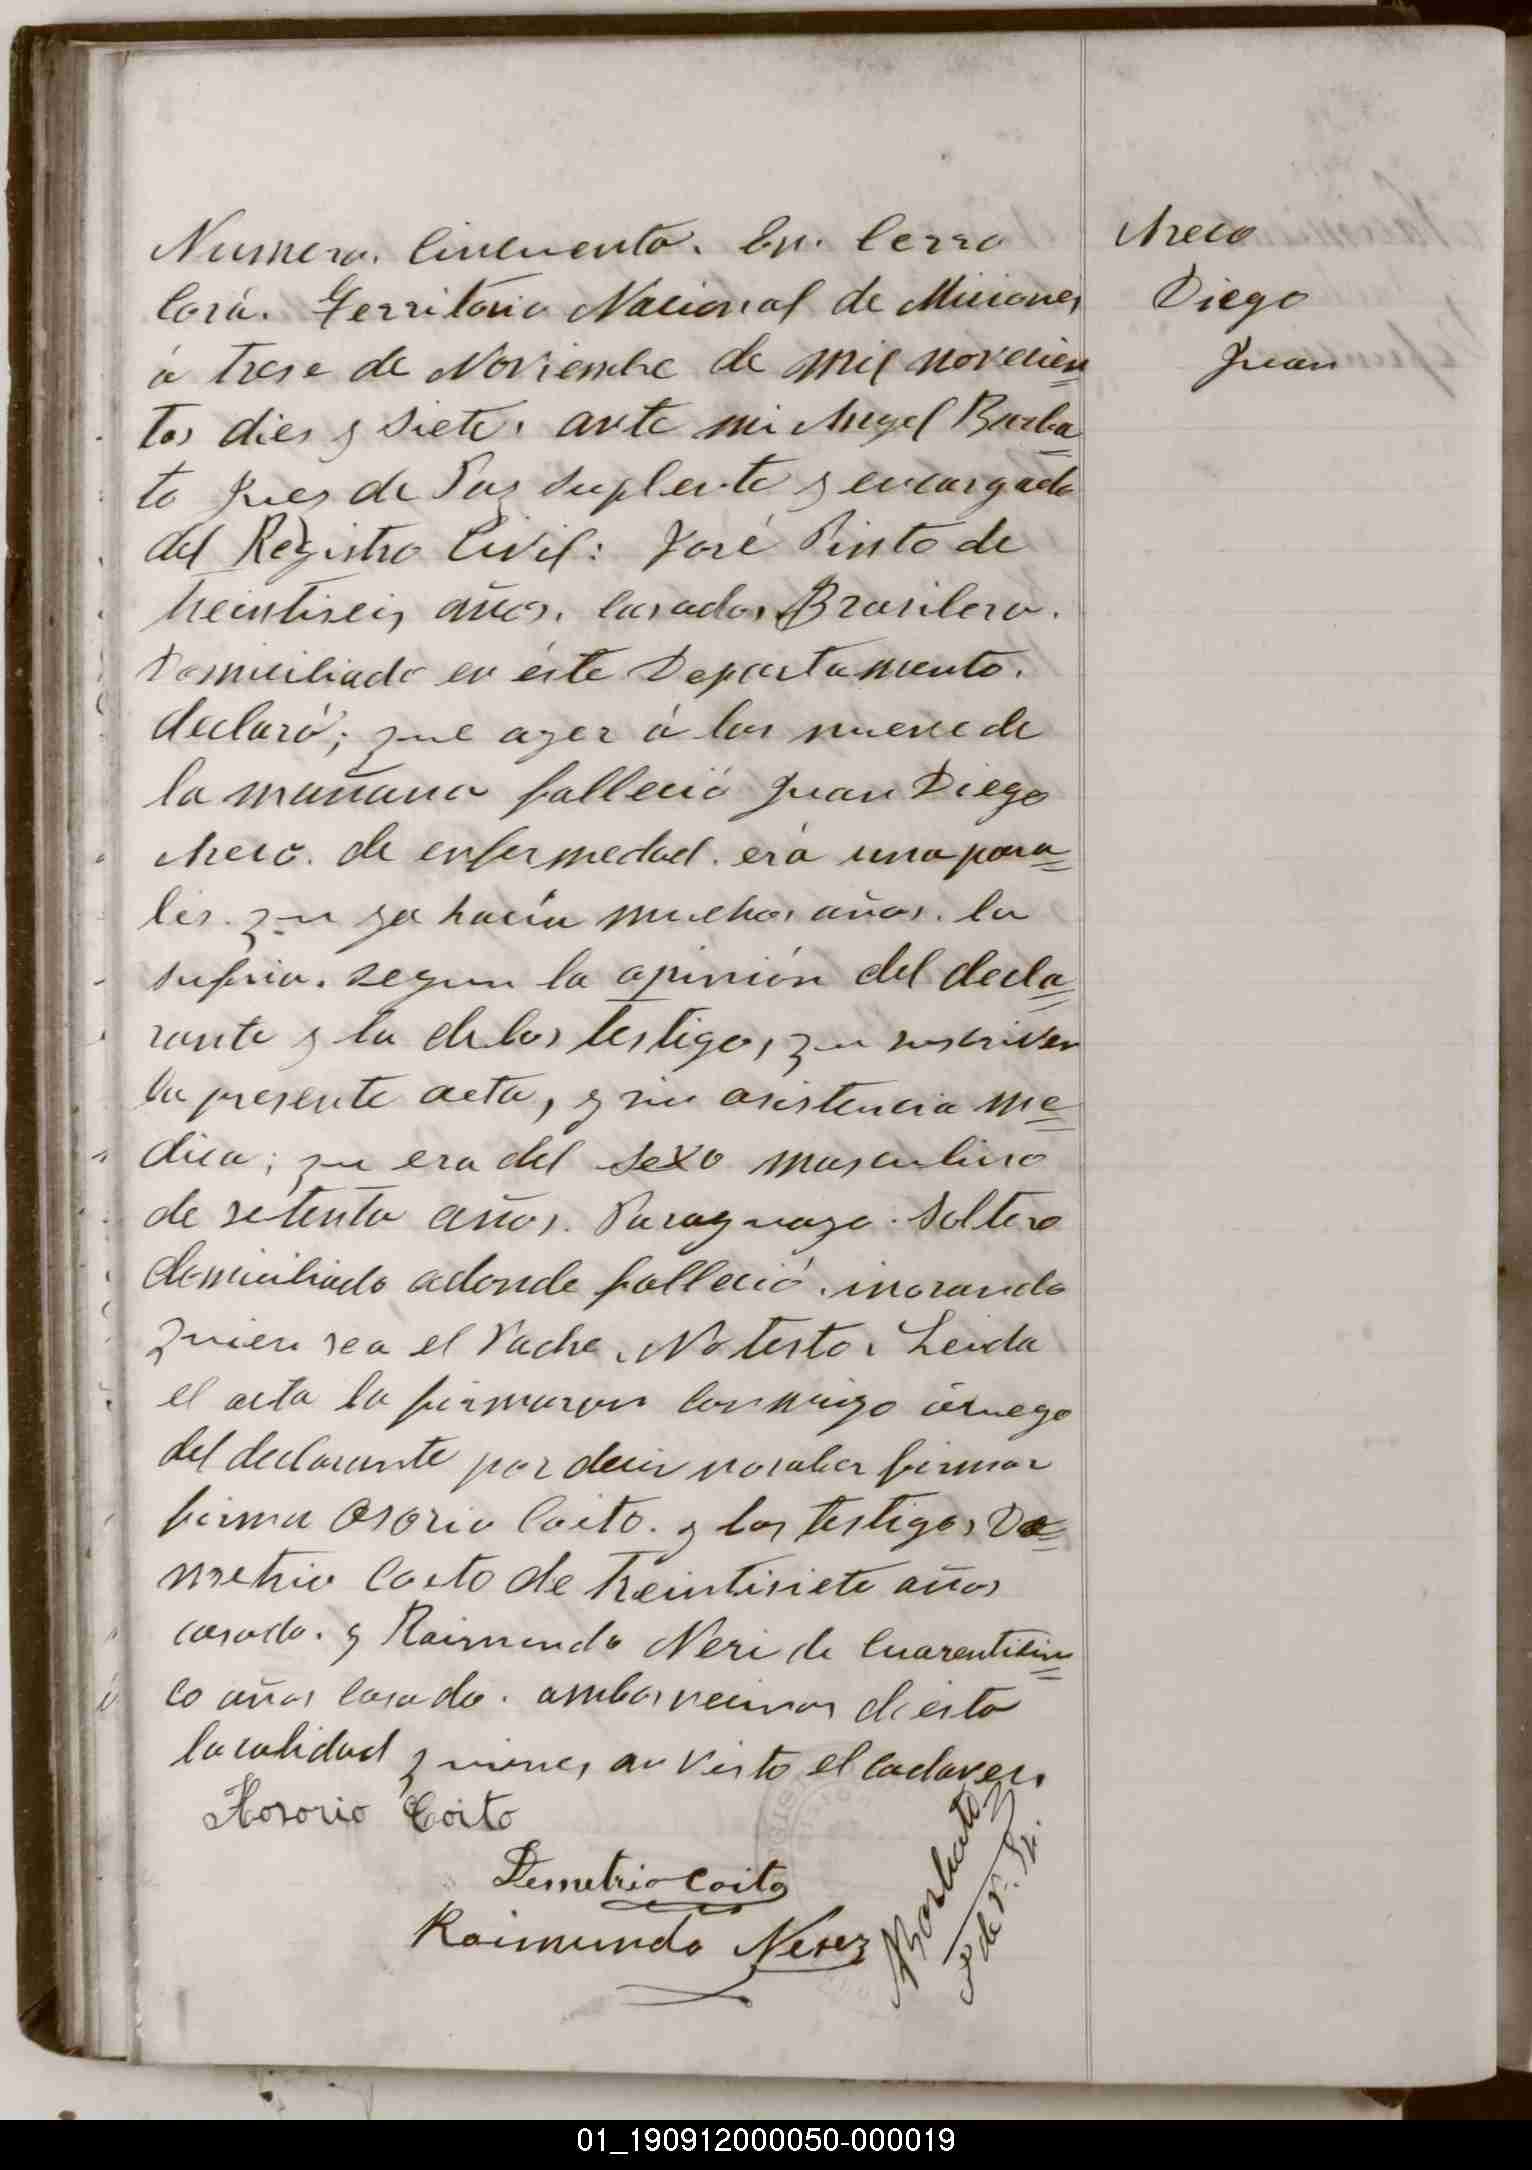 Numero. Cincuenta. En. Cerro
Corá. Territorio Nacional de Misiones
á trese de Noviembre de mil novecien
tos dies y siete. ante mi Angel Barba
to Jues de Paz suplente y encargado
del Registro Civil: José Pinto de
treintiseis años. Casado, Brasilero.
Domiciliado en éste Departamento.
declaró; que ayer á las nueve de
la mañana falleció Juan Diego
Areco. de enfermedad. era una para
lis. que ya hacia muchos años. la
sufria. segun la opinión del decla
rante y la de los testigos que suscriven
la presente acta, y sin asistencia me
dica; que era del sexo masculino
de setenta años. Paraguayo. Soltero
domiciliado adonde falleció. inorando
quien sea el Padre. No testo. Leida
el acta la firmaron conmigo áruego
del declarante por decir nosaber firmar
firma Osorio Coito. y los testigos De
metrio Coito de treintisiete años
casado. y Raimundo Neri de Cuarenticin
co años Casado. ambos vecinos de ésta
localidad quienes an visto el Cadaver.
Hosorio Coito
Demetrio Coito
Raimundo Nerez
A Barbato
J. de P. St.
Areco
Diego
Juan
01_190912000050-000019